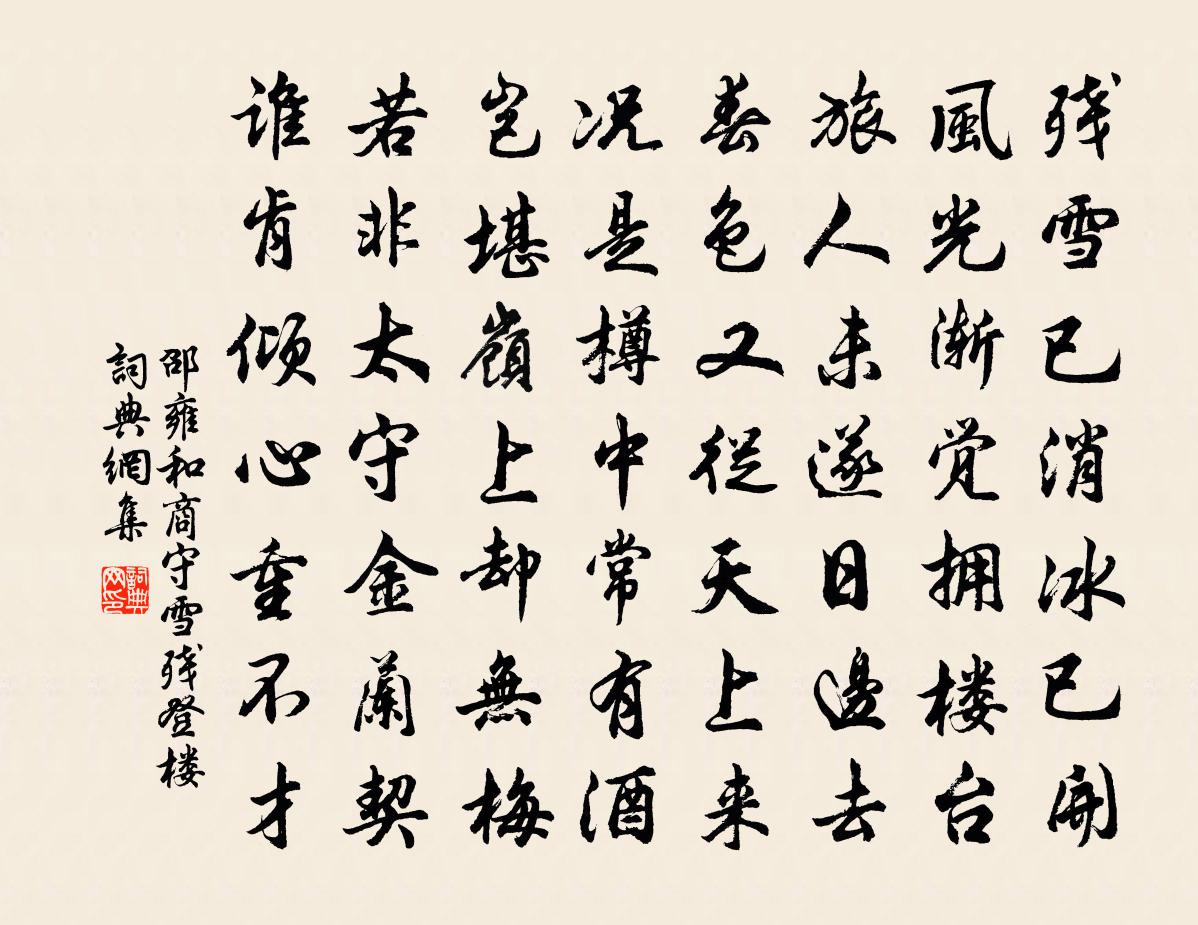 残雪已消冰已開
風光渐觉拥楼台
旅人未遂日邊去
春色又從天上来
况是樽中常有酒
岂堪嶺上却無梅
若非太守金蘭契
谁肯倾心重不才
邵雍和商守雪残登楼
詞典網集
詞典网印